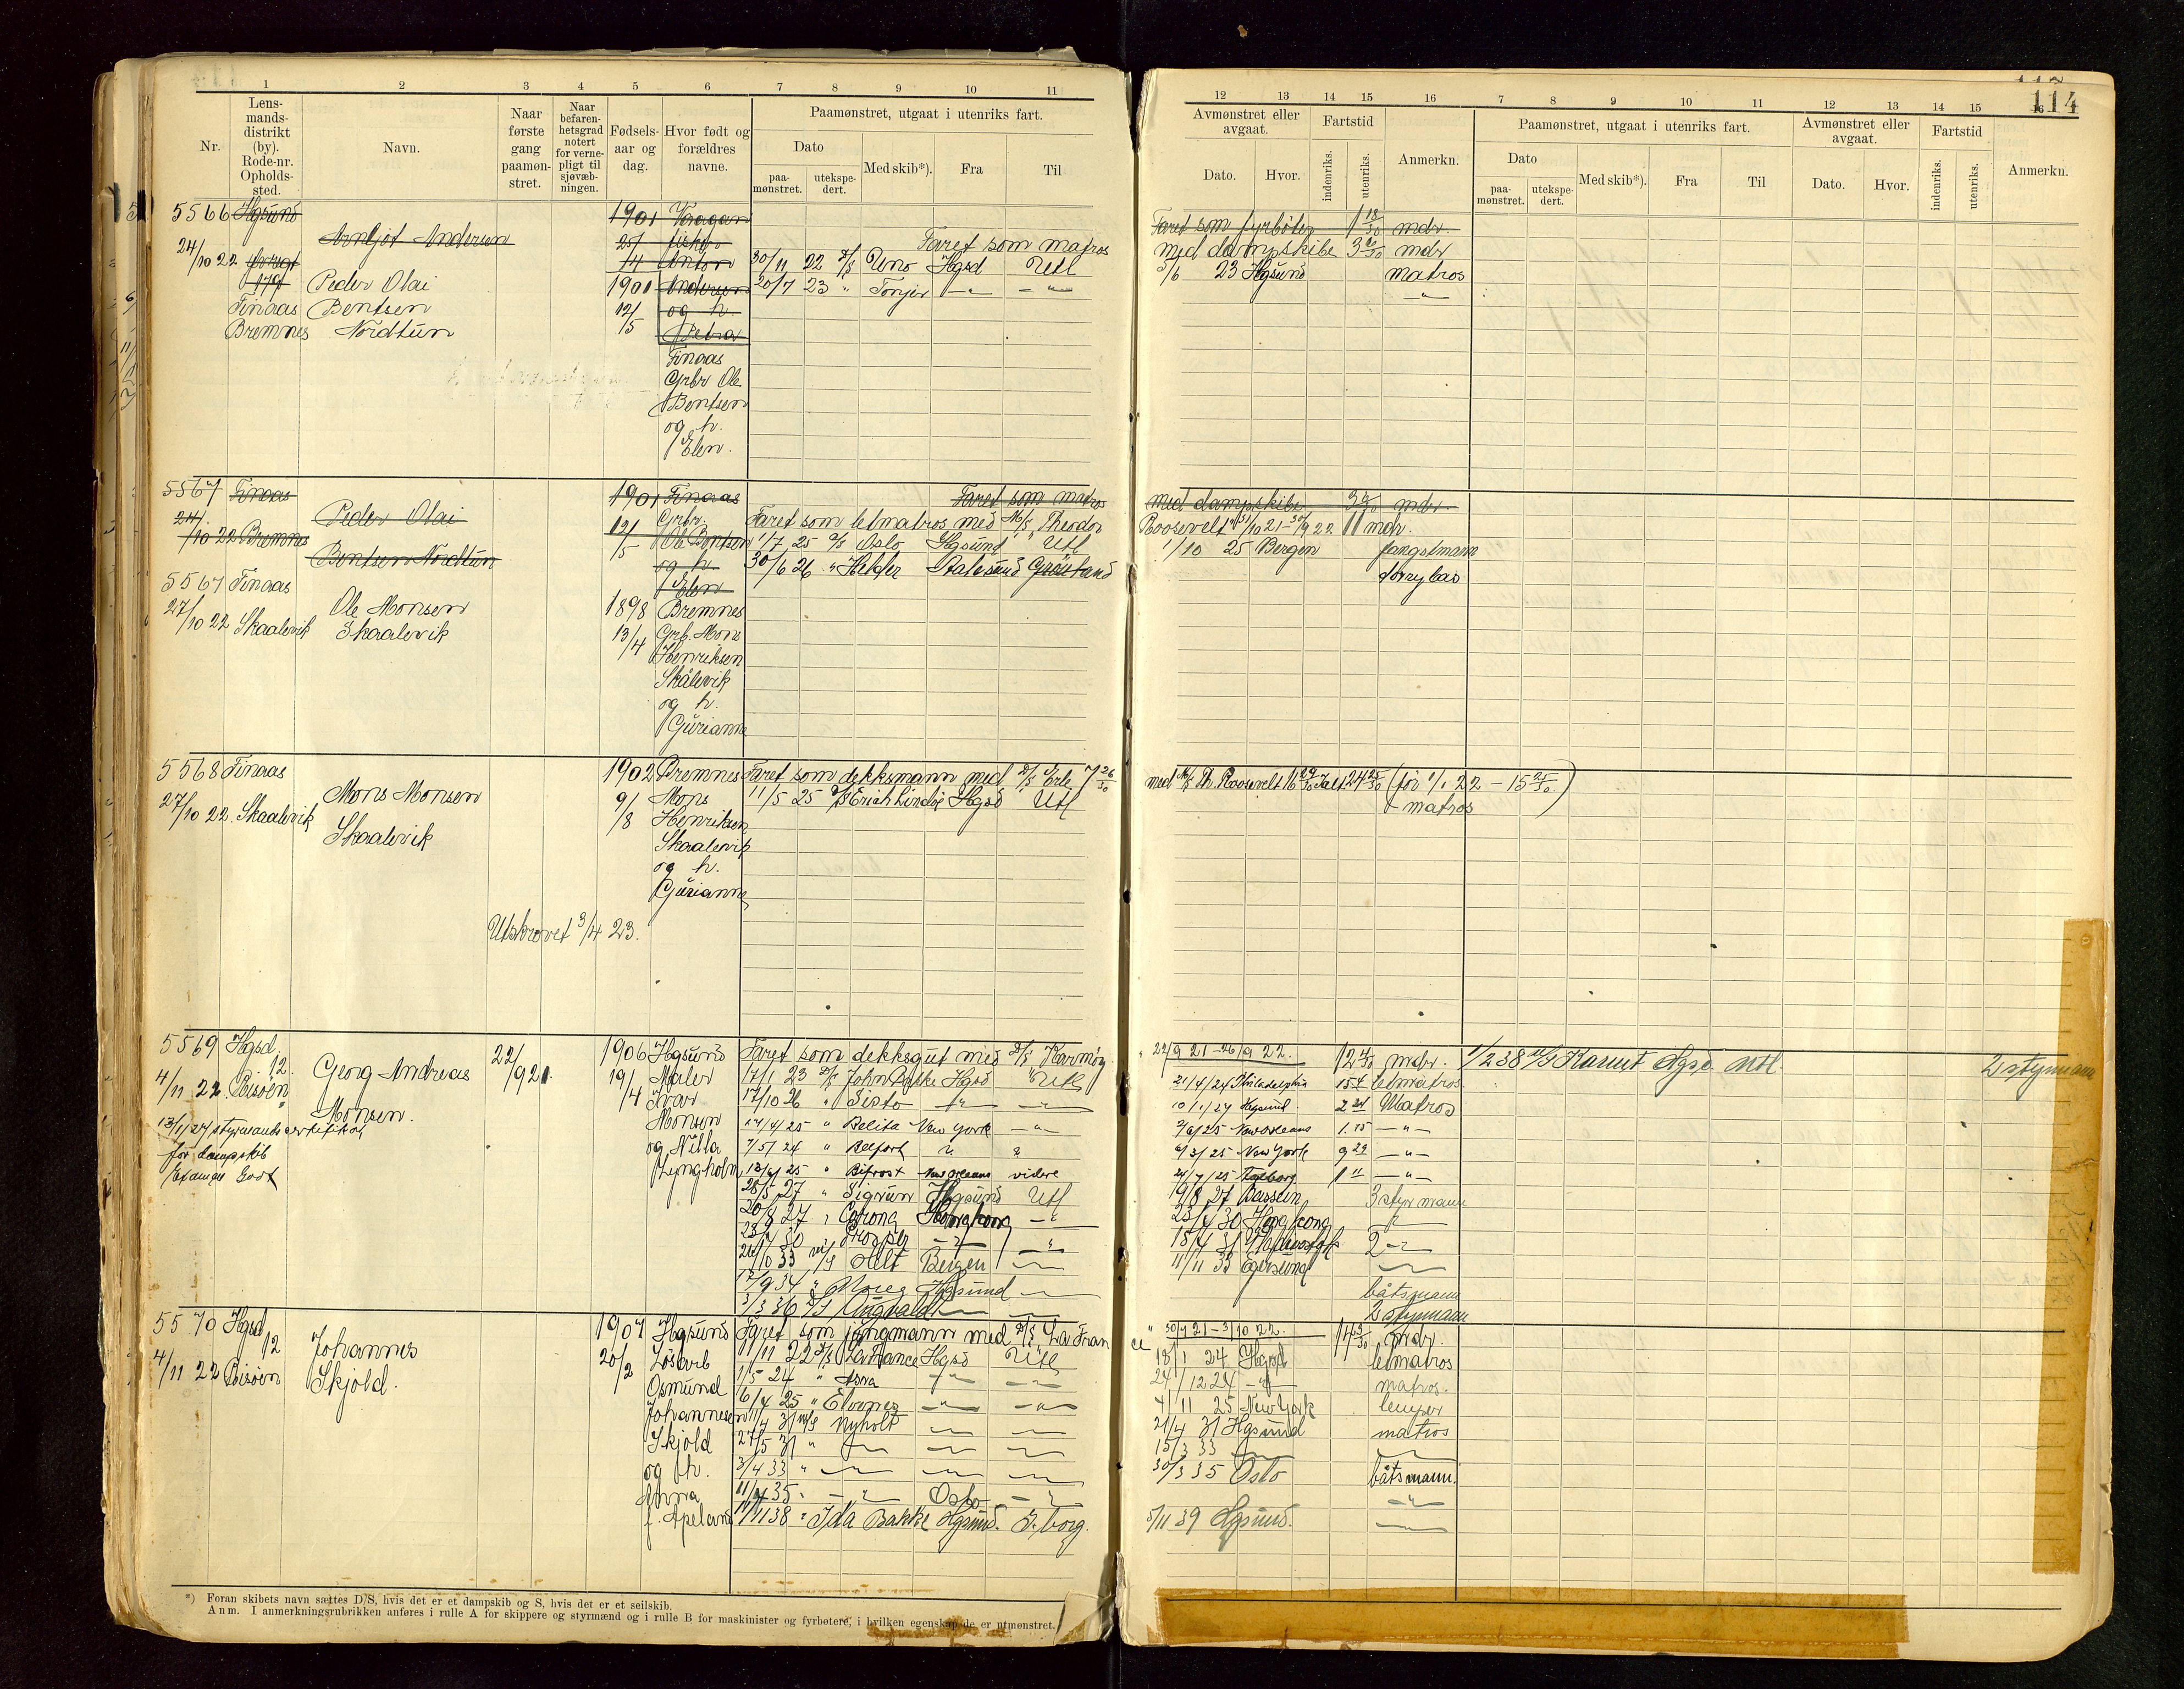 114
1 2 3 4 5 6 7 8 9 10 11
Nr.
Lens-
mands-
distrikt
(by).
Rode-nr.
Opholds-
sted.
Navn.
Naar
første
gang
paamøn-
stret.
Naar
befaren-
hetsgrad
notert
for verne-
pligt til
sjøvæb-
ningen.
Fødsels-
aar og
dag.
Hvor født og
forældres
navne.
Paamønstret, utgaat i utenriks fart.
Dato
paa-
mønstret.
utekspe-
dert.
Med skib*).
Fra
Til
12 13 14 15 16 7 8 9 10 11 12 13 14 15 16
Avmønstret eller
avgaat.
Dato.
Hvor.
Fartstid
indenriks.
utenriks.
Anmerkn.
Paamønstret, utgaat i utenriks fart.
Dato
paa-
mønstret.
utekspe-
dert.
Med skib*).
Fra
Til
Avmønstret eller
avgaat.
Dato.
Hvor.
Fartstid
indenriks.
utenriks.
Anmerkn.
5566 Hgsund
Arnljot Andersen
24/10 22
Peder Olai
Finaas Bentsen
Bremnes Nordtun
1901
25/
11
Anton
Andersen
og h.
Petra
1901
12/
5
Finaas
Grbr Ole
Bentsen
og h.
Elen.
Faret som matros
30/11 22 D/S Uno Hgsd Utl
20/7 23 " Tonjer -"- -"-
Faret som fyrbøter 1 18/30 mdr.
med dampskibe mdr
5/6 23 Hgsund matros
-"-
5567 Finaas
24/10 22 Bremnes
Peder Olai
Bentsen Nordtun
1901 Finaas
12/
5
Grbr.
Ole Bentsen
og h.
Elen
Faret som matros
Faret som letmatros med M/S Theodor
1/7 25 D/S Oslo Hgsund Utl
30/6 26 " Helder Aalesund Grønland
med dampskibe mdr.
Roosevelt 11 mdr.
1/10 25 Bergen fangstmann
dorrybas
5567 Finaas
27/10 22 Skaalevik
Ole Monsen
Skaalevik
1898
13/
4
Bremnes
Grb. Mons
Henriksen
Skålevik
og h.
Gurianne
5568 Finaas
27/10 22. Skaalevik
Mons Monsen
Skaalevik
1902
9/
8
Bremnes
Mons
Henriksen
Skaalevik
og h.
Gurianne
Utskrevet 3/4 23.
Faret som dekksmann med D/S Erle 7 26/30
11/5 25 D/S Erich Lindøe Hgsd Utl
med M/S Th. Roosevelt
matros
5569 Hgsd.
12.
4/11 22 Risøen
Georg Andreas
Monsen.
22/9 21.
13/1/27 styrmandscertifikat
for dampskib
Examen Godt
1906
19/
4
Hgsund
Maler
Ivar
Monsen
og Nilla
Lyngholm
Faret som dekksgut med D/S Karmøy
17/1 23 D/S John Bakke Hgsd Utl
17/10 26 " Sisto -"- -"-
17/4/25 " Belita New York -"-
7/5/24 " Belfort " "
13/6/25 " Bifrost New Orleans videre
28/5 27 " Sigrun Hgsund Utl
20/8 27 " Corona Hongkong -"-
23/4 30 " Prosper -"- "
24/10 33 M/S Helt Bergen -"-
12/9 34 " Hgsund -"-
3/3 36 D/S Ingvald -"- -"-
22/9 21 - 26/9 22. mdr.
21/4/24 Philadelphia letmatros
10/1/27 Hgsund. Matros
2/6/25 New Orleans 1.15 -"-
6/3/25 New York 9 29 -"-
-"-
19/8 27 Bassein 3 styrmann
23/4 30 Hongkong -"-
15/4 31 Vladivostok 2 -"-
11/11 33 Egersund -"-
båtsmann
2 styrmann
1/2 38 M/S Karmt Hgsd. Utl. 2 styrmann
5570 Hgsd
12
4/11 22 Risøen
Johannes
Skjold.
1907
20/
2
Hgsund
Løsarb
Osmund
Johannesen
Skjold
og h.
Anna
f. Apeland
Faret som jungmann med D/S La Fran
11/11 22 D/S La France Hgsd Utl
1/5 24 " Asra -"- -"-
16/4 25 " Elvenes -"- -"-
11/4 31 M/S Nyholt -"- -"-
27/5 31 " -"- -"- -"-
3/4 33 " -"- -"- -"-
11/4 35 " -"- Oslo -"-
17/11 38 " Ida Bakke Hgsund. G.borg.
ce 30/9 21 - 3/10 22. mdr.
18/1 24 Hgsd letmatros
24/12 24 -"- matros.
4/11 25 New York lemper
21/4 31 Hgsund matros
15/3 33 -"- -"-
30/3 35 Oslo båtsmann.
-"-
5/11 39 Hgsund. -"-
*) Foran skibets navn sættes D/S, hvis det er et dampskib og S, hvis det er et seilskib.
Anm. I anmerkningsrubrikken anføres i rulle A for skippere og styrmænd og i rulle B for maskinister og fyrbøtere, i hvilken egenskap de er utmønstret.